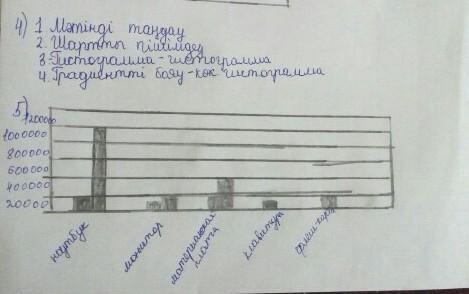 4) 1 Мәтінді таңдау
2. Шартты пішімдеу
3. Гистограмма-гистограмма
4. Градиентті бояу-көк гистограмма
5)
120000
1000000
800000
600000
400000
20000
ноутбук
монитор
материнская
плата
клавиатура
флеш-карта